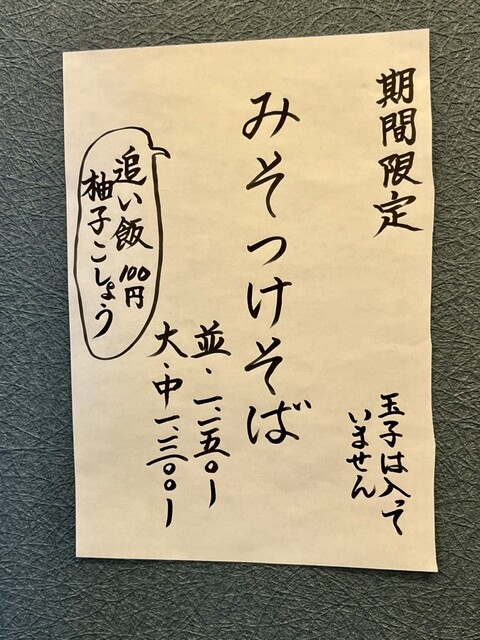 期間限定
玉子は入って
いません
みそつけそば
並・一、一五〇ー
大・中一、三〇〇ー
追い飯100円
柚子こしょう